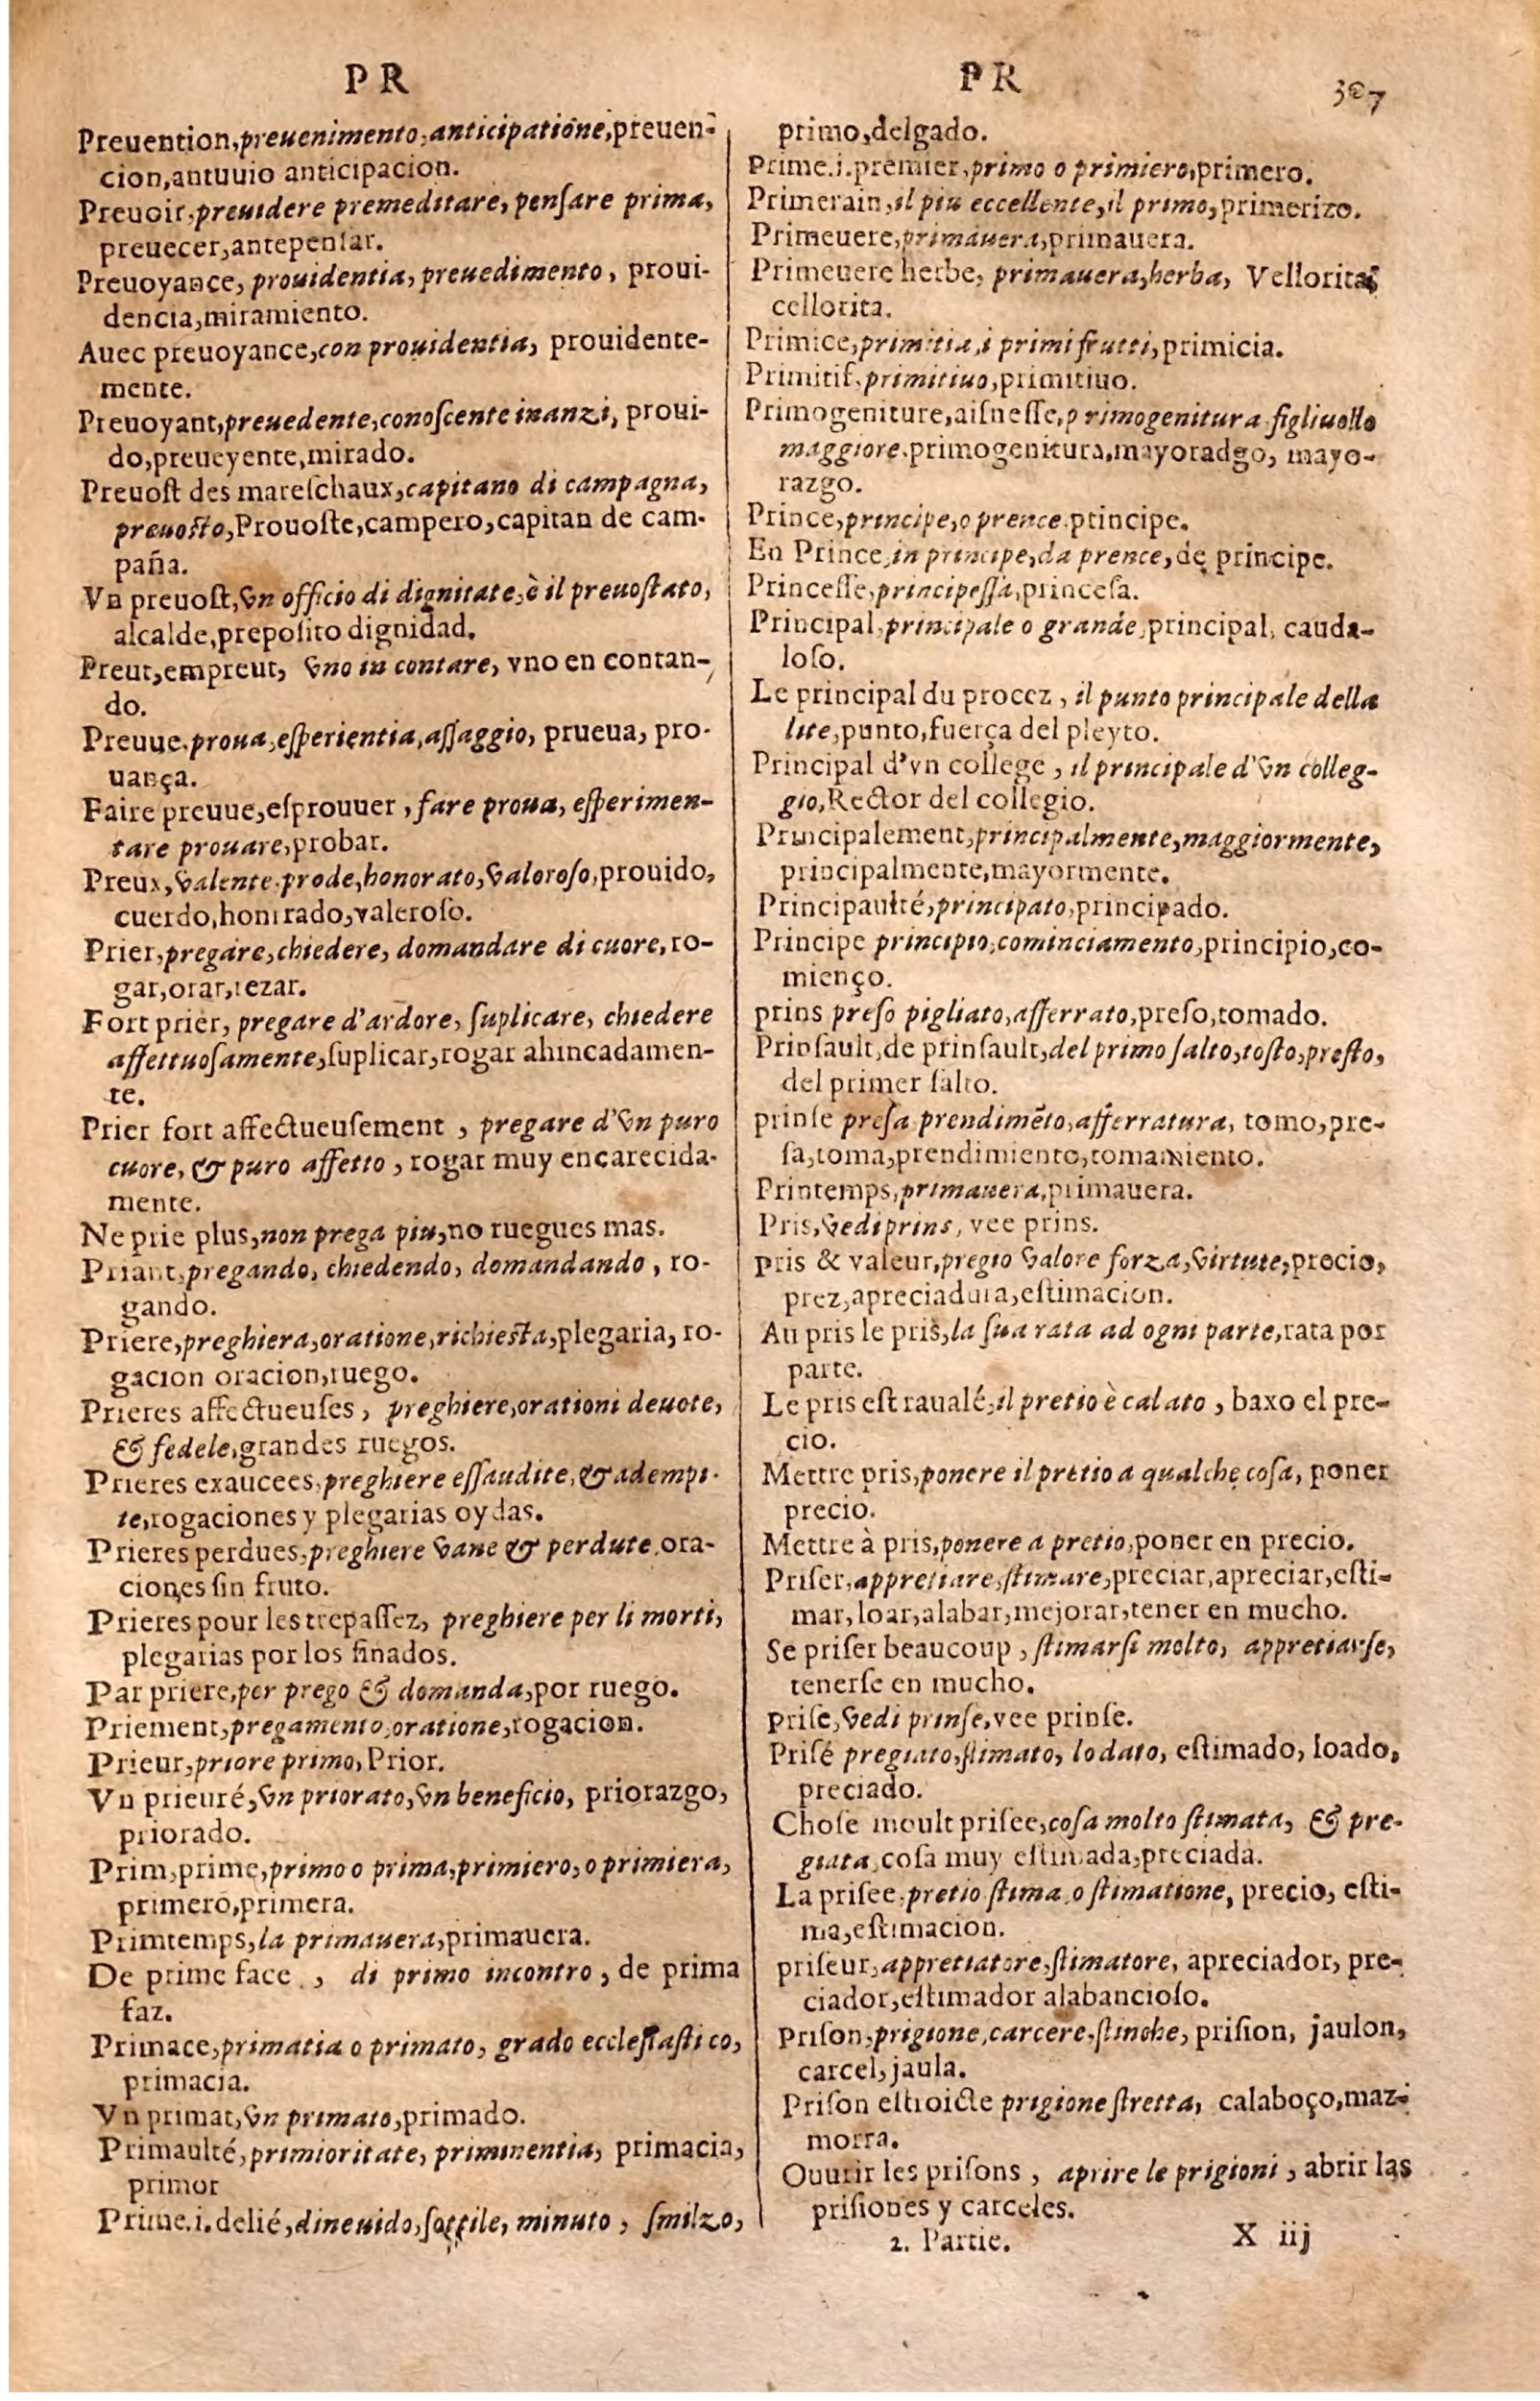 PR
PR
Preuention, preuenimento, anticipatione, preuen-
cion, antuuio anticipacion.
Preuoir, preuidere premeditare, penſare prima,
preuecer, antepenſar.
Preuoyance, prouidentia, preuedimento, proui-
dencia, miramiento.
Auec preuoyance, con prouidentia, prouidente-
mente.
Preuoyant, preuedente, conoſcente inanzi, proui-
do, preueyente, mirado.
Preuoſt des mareſchaux, capitano di campagna,
preuoſto, Prouoſte, campero, capitan de cam-
paña.
Vn preuoſt, vn officio di dignitate, è il preuoſtato,
alcalde, prepoſito dignidad.
Preut, empreut, vno in contare, vno en contan-
do.
Preuue. proua, eſperientia, aſſaggio, prueua, pro-
uança.
Faire preuue, eſprouuer, fare proua, eſperimen-
tare prouare, probar.
Preux, valente. prode, honorato, valoroſo, prouido,
cuerdo, honrrado, valeroſo.
Prier, pregare, chiedere, domandare di cuore, ro-
gar, orar, rezar.
Fort prier, pregare d'ardore, ſuplicare, chiedere
affettuoſamente, ſuplicar, rogar ahincadamen-
te.
Prier fort affectueuſement, pregare d'vn puro
cuore, & puro affetto, rogar muy encarecida-
mente.
Ne prie plus, non prega piu, no ruegues mas.
Priant, pregando, chiedendo, domandando, ro-
gando.
Priere, preghiera, oratione, richieſta, plegaria, ro-
gacion oracion, ruego.
Prieres affectueuſes, preghiere, orationi deuote,
& fedele, grandes ruegos.
Prieres exaucees, preghiere eſſaudite, & adempi-
te, rogaciones y plegarias oydas.
Prieres perdues, preghiere vane & perdute, ora-
ciones ſin fruto.
Prieres pour les trepaſſez, preghiere per li morti,
plegarias por los finados.
Par priere, per prego & domanda, por ruego.
Priement, pregamento, oratione, rogacion.
Prieur, priore primo, Prior.
Vn prieuré, vn priorato, vn beneficio, priorazgo,
priorado.
Prim, prime, primo o prima, primiero, o primiera,
primero, primera.
Primtemps, la primauera, primauera.
De prime face, di primo incontro, de prima
faz.
Primace, primatia o primato, grado eccleſiaſtico,
primacia.
Vn primat, vn primato, primado.
Primaulté, primioritate, priminentia, primacia,
primor
Prime. i. delié, dineuido, ſottile, minuto, ſmilzo,
primo, delgado.
Prime. i. premier, primo o primiero, primero.
Primerain, il piu eccellente, il primo, primerizo.
Primeuere, primauera, primauera.
Primeuere herbe, primauera, herba, Vellorita,
cellorita.
Primice, primitia, i primi frutti, primicia.
Primitif, primitiuo, primitiuo.
Primogeniture, aiſneſſe, primogenitura figliuollo
maggiore. primogenitura, mayoradgo, mayo-
razgo.
Prince, principe, o prence. principe.
En Prince, in principe, da prence, de principe.
Princeſſe, principeſſa, princeſa.
Principal, principale o grande, principal, cauda-
loſo.
Le principal du procez, il punto principale della
lite, punto, fuerça del pleyto.
Principal d'vn college, il principale d'vn colleg-
gio, Rector del collegio.
Principalement, principalmente, maggiormente,
principalmente, mayormente.
Principaulté, principato, principado.
Principe principio, cominciamento, principio, co-
mienço.
prins preſo pigliato, afferrato, preſo, tomado.
Prinſault, de prinſault, del primo ſalto, toſto, preſto,
del primer ſalto.
prinſe preſa prendimẽto, afferratura, tomo, pre-
ſa, toma, prendimiento, tomamiento.
Printemps, primauera, primauera.
Pris, vedi prins, vee prins.
pris & valeur, pregio valore forza, virtute, precio,
prez, apreciadura, eſtimacion.
Au pris le pris, la ſua rata ad ogni parte, rata por
parte.
Le pris eſt raualé, il pretio è calato, baxo el pre-
cio.
Mettre pris, ponere il pretio a qualche coſa, poner
precio.
Mettre à pris, ponere a pretio, poner en precio.
Priſer, appretiare, ſtimare, preciar, apreciar, eſti-
mar, loar, alabar, mejorar, tener en mucho.
Se priſer beaucoup, ſtimarſi molto, appretiarſe,
tenerſe en mucho.
priſe, vedi prinſe, vee prinſe.
Priſé pregiato, ſtimato, lodato, eſtimado, loado,
preciado.
Choſe moult priſee, coſa molto ſtimata, & pre-
giata, coſa muy eſtimada, preciada.
La priſee. pretio ſtima o ſtimatione, precio, eſti-
ma, eſtimacion.
priſeur, appretiatore, ſtimatore, apreciador, pre-
ciador, eſtimador alabancioſo.
Priſon, prigione, carcere, ſtinche, priſion, jaulon,
carcel, jaula.
Priſon eſtroicte prigione ſtretta, calaboço, maz-
morra.
Ouurir les priſons, aprire le prigioni, abrir las
priſiones y carceles.
2. Partie.
X iij